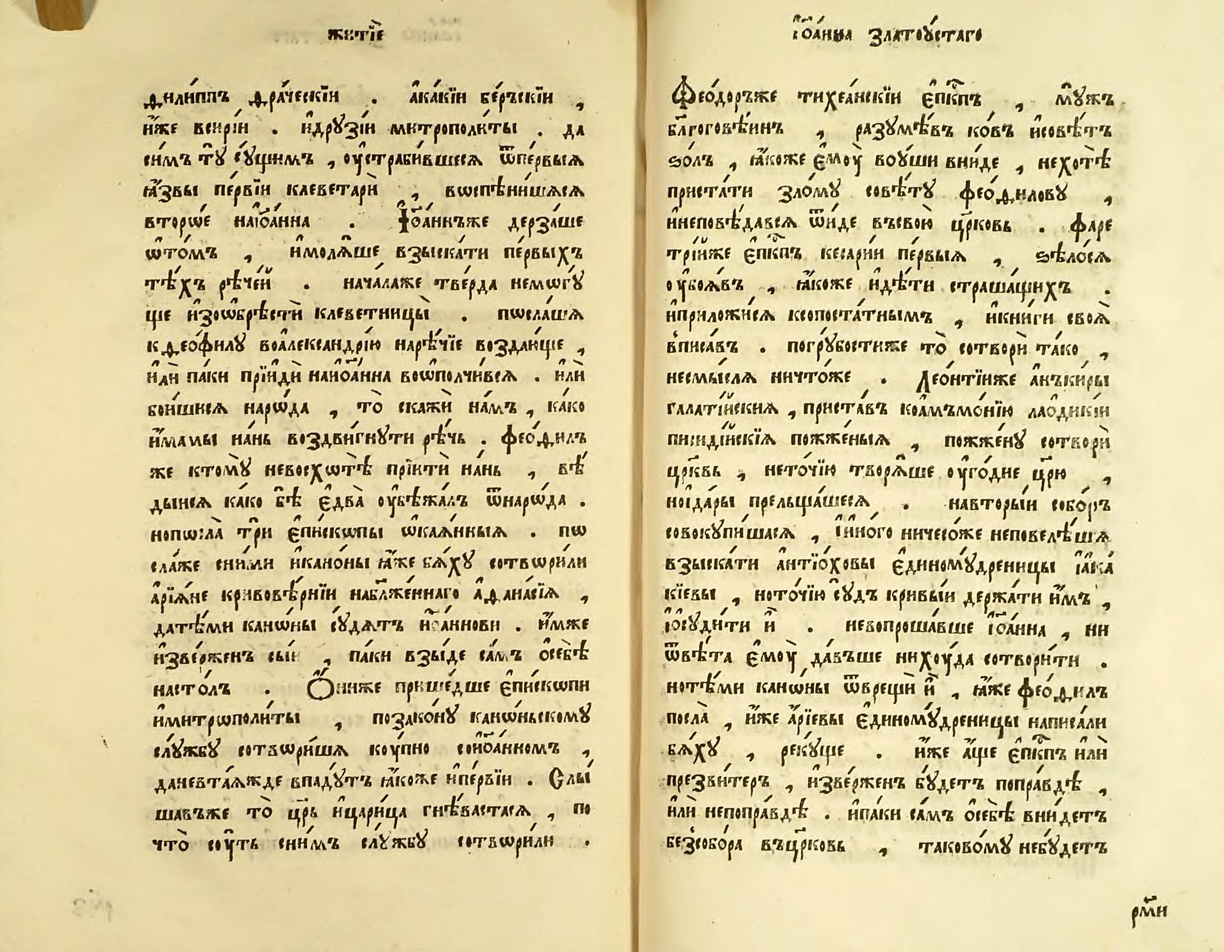 житїе
филиппъ драческїи . акакїи беръскїи ,
и҆́же всирїи . и҆друзїи митрополиты . да
симъ тꙋ сꙋщимъ , оустрабившеся ѿпервыя
ꙗ҆́звы первїи клеветари , вѡспѣнишяся
второѐ наіѡ҃анна . Іѡ҃аннъже дерзаше
ѡтомъ , и҆моляше взыскати первыхъ
тѣхъ рѣчеи . началаже тверда немогꙋ
ще и҆зѡбрѣсти клеветницы . пѡслашя
кѳеѡфилꙋ воалександрїю нарѣчїе воздаище ,
и҆лѝ паки прїиди наиѡ҃анна воѡполчився . и҆лѝ
боишися нарѡда , то скажи намъ , како
и҆мамы нань воздвигнꙋти рѣчь . ѳеѡфилъ
же ктомꙋ невосхотѣ прїити нань , вѣ
дыися како бѣ є҆два оубѣжалъ ѿнарѡда .
нопѡсла три є҆пископы ѡкаянныя . по
слаже сними и҆каноны ꙗ҆́же бяхꙋ сотвѡрили
а҆рїяне кривовѣрнїи наблаженнаго а҆фанасїя ,
датѣми канѡны сꙋдятъ иѡ҃аннови . и҆мже
и҆зверженъ сыи , паки взыде самъ ѡ҆себѣ
настолъ . Ониже пришедше є҆пископи
и҆митрѡполиты , позаконꙋ канѡньскомꙋ
слꙋжбꙋ сотвѡришя коупно соиѡ҃анномъ ,
даневтаяжде впадꙋтъ ꙗ҆́коже и҆первїи . Слы
шавъже то ц҃рь и҆царица гнѣвастася , по
что соуть снимъ слꙋжбꙋ сотвѡрили .
іѡ҃анна златоꙋстаго
Ѳеодоръже тихеанскїи є҆пⷭ҇кпъ , мꙋжъ
бл҃гоговѣинъ , разꙋмѣвъ ковъ и҆совѣтъ
ѕолъ , ꙗ҆́коже є҆моу воуши вниде , нехотѣ
пристати зломꙋ совѣтꙋ ѳеофиловꙋ ,
и҆неповѣдався ѿиде въсвою цр҃ковь . фаре
трїиже є҆пⷭ҇кпъ кесарїи первыя , ѕѣлося
оубоявъ , ꙗ҆́коже и҆дѣти страшащихъ .
и҆приложися ксопостатнымъ , и҆книги своя
вписавъ . погрꙋбостиже то сотвори тако ,
несмысля ничтоже . Леонтїиже а҆нъкиры
галатїиския , приставъ коамъмонїю лаодикїи
писидїискїя пожженыя , пожженꙋ сотвори
цр҃квь , неточїю творяше оугодие цр҃ю ,
ноидары прельщашеся . навторыи соборъ
совокꙋпишася , и҆иного ничесоже неповелѣшя
взыскати а҆нтїоховы є҆диномꙋдреницы і҆ака
кїевы , ноточїю сꙋдъ кривыи держати и҆мъ ,
і҆осꙋдити и҆̀ . невопрошавше іѡ҃анна , ни
ѿвѣта є҆моу давъше нихоуда сотворити .
нотѣми канѡны ѿврещи и҆̀ , ꙗ҆́же ѳеофилъ
посла , и҆же а҆рїевы є҆диномꙋдреницы написали
бяхꙋ , рекꙋще . и҆же а҆ще є҆пⷭ҇кпъ и҆ли
презвитеръ , и҆зверженъ бꙋдетъ поправдѣ ,
и҆лѝ неправдѣ . и҆паки самъ ѡ҆себѣ внидетъ
безсобора въцр҃ковь , таковомꙋ небꙋдетъ
рм҃и